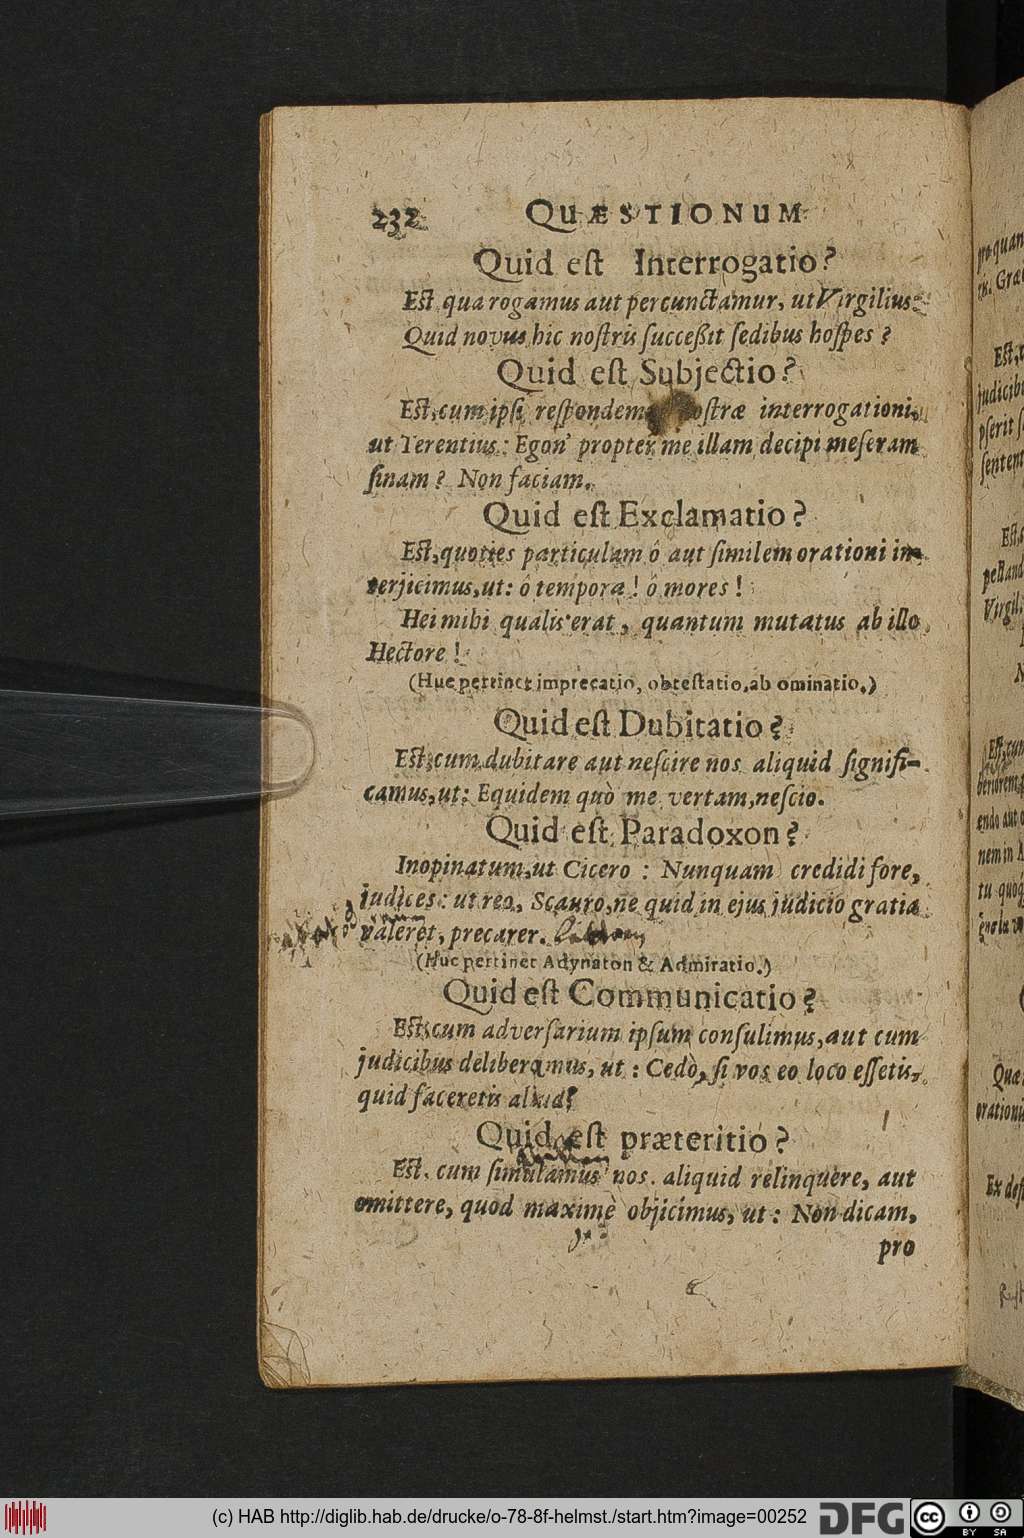 232 QUÆSTIONUM
Quid est Interrogatio?
Est, qua rogamus aut percunctamur, ut Virgilius:
Quid novus hic nostris successit sedibus hospes?
Quid est Subjectio?
Est, cum ipsi respondemus nostræ interrogationi,
ut Terentius: Egon' propter me illam decipi meseram
sinam? Non faciam.
Quid est Exclamatio?
Est, quoties particulam ô aut similem orationi in-
terjicimus, ut: ô tempora! ô mores!
Hei mihi qualis erat, quantum mutatus ab illo
Hectore!
(Huc pertinet imprecatio, obtestatio, ab ominatio.)
Quid est Dubitatio?
Est, cum dubitare aut nescire nos aliquid signifi-
camus, ut: Equidem quò me vertam, nescio.
Quid est Paradoxon?
Inopinatum, ut Cicero: Nunquam credidi fore,
judices: ut reo, Scauro, ne quid in ejus judicio gratia
valeret, precarer.
(Huc pertinet Adynaton & Admiratio.)
Quid est Communicatio?
Est, cum adversarium ipsum consulimus, aut cum
judicibus deliberamus, ut: Cedò, si vos eo loco essetis,
quid faceretis aliud?
Quid est præteritio?
Est, cum simulamus nos aliquid relinquere, aut
omittere, quod maximè objicimus, ut: Non dicam,
pro
(c) HAB http://diglib.hab.de/drucke/o-78-8f-helmst./start.htm?image=00252 DFG CC BY SA